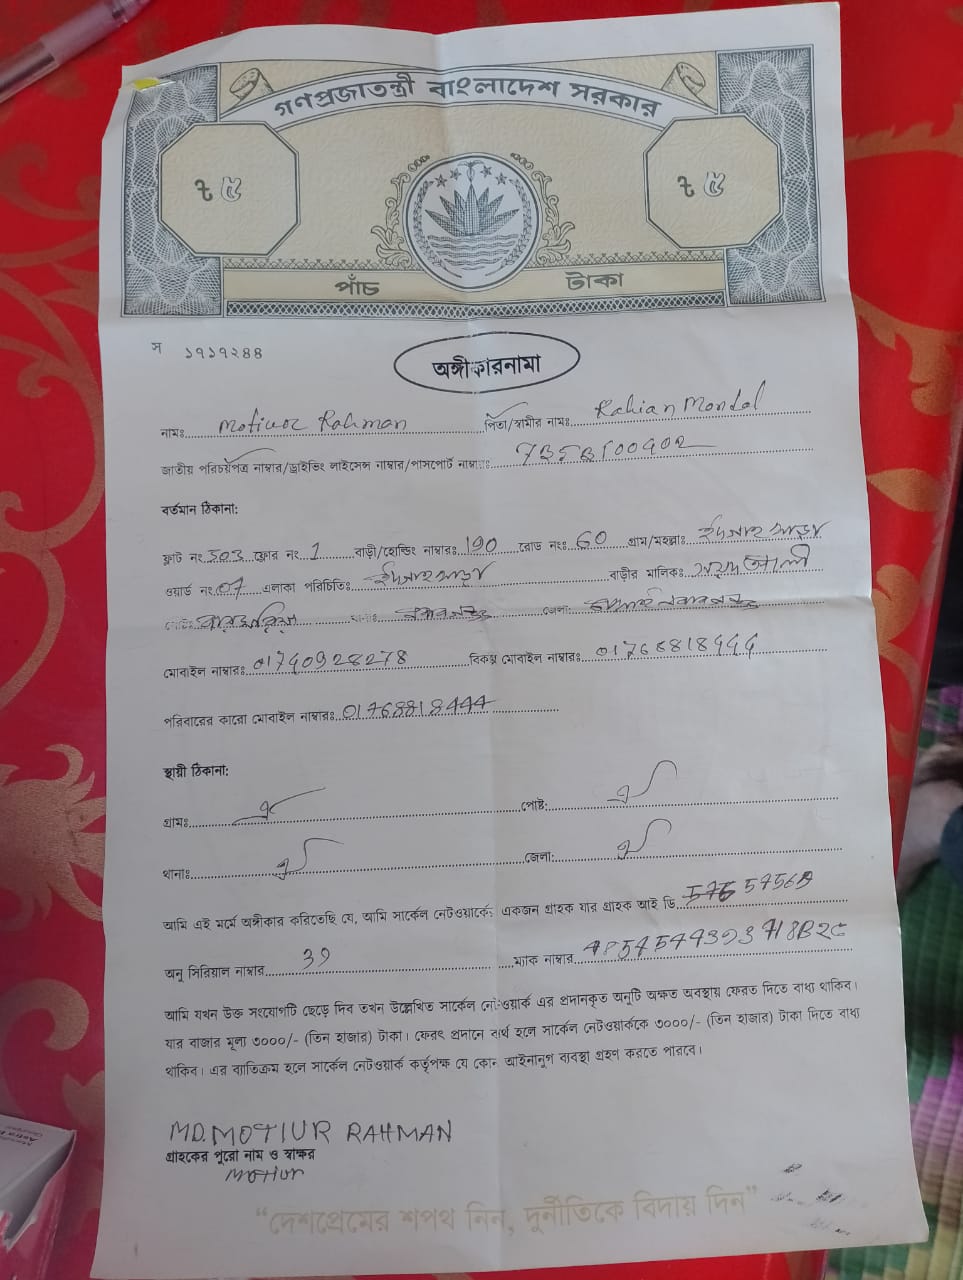 গণপ্রজাতন্ত্রী বাংলাদেশ সরকার
৳ ৫ ৳ ৫
পাঁচ টাকা
স ১৭১৭২৪৪
অঙ্গীকারনামা
নামঃ Motiur Rahman পিতা/স্বামীর নামঃ Rahian Mondol
জাতীয় পরিচয়পত্র নাম্বার/ড্রাইভিং লাইসেন্স নাম্বার/পাসপোর্ট নাম্বারঃ
বর্তমান ঠিকানা:
ফ্লাট নং 303 ফ্লোর নং 1 বাড়ী/হোল্ডিং নাম্বারঃ 190 রোড নংঃ 60 গ্রাম/মহল্লাঃ
ওয়ার্ড নং 07 এলাকা পরিচিতিঃ বাড়ীর মালিকঃ
থানাঃ জেলাঃ
মোবাইল নাম্বারঃ 01740928278 বিকল্প মোবাইল নাম্বারঃ
পরিবারের কারো মোবাইল নাম্বারঃ 01768818444
স্থায়ী ঠিকানা:
গ্রামঃ ঐ পোষ্টঃ ঐ
থানাঃ ঐ জেলাঃ ঐ
আমি এই মর্মে অঙ্গীকার করিতেছি যে, আমি সার্কেল নেটওয়ার্কে একজন গ্রাহক যার গ্রাহক আই ডি
অনু সিরিয়াল নাম্বার 39 ম্যাক নাম্বার
আমি যখন উক্ত সংযোগটি ছেড়ে দিব তখন উল্লেখিত সার্কেল নেটওয়ার্ক এর প্রদানকৃত অনুটি অক্ষত অবস্থায় ফেরত দিতে বাধ্য থাকিব।
যার বাজার মূল্য ৩০০০/- (তিন হাজার) টাকা। ফেরৎ প্রদানে ব্যর্থ হলে সার্কেল নেটওয়ার্ককে ৩০০০/- (তিন হাজার) টাকা দিতে বাধ্য
থাকিব। এর ব্যতিক্রম হলে সার্কেল নেটওয়ার্ক কর্তৃপক্ষ যে কোন আইনানুগ ব্যবস্থা গ্রহণ করতে পারবে।
MD. MOTIUR RAHMAN
গ্রাহকের পুরো নাম ও স্বাক্ষর
MOTIUR
“দেশপ্রেমের শপথ নিন, দুর্নীতিকে বিদায় দিন”